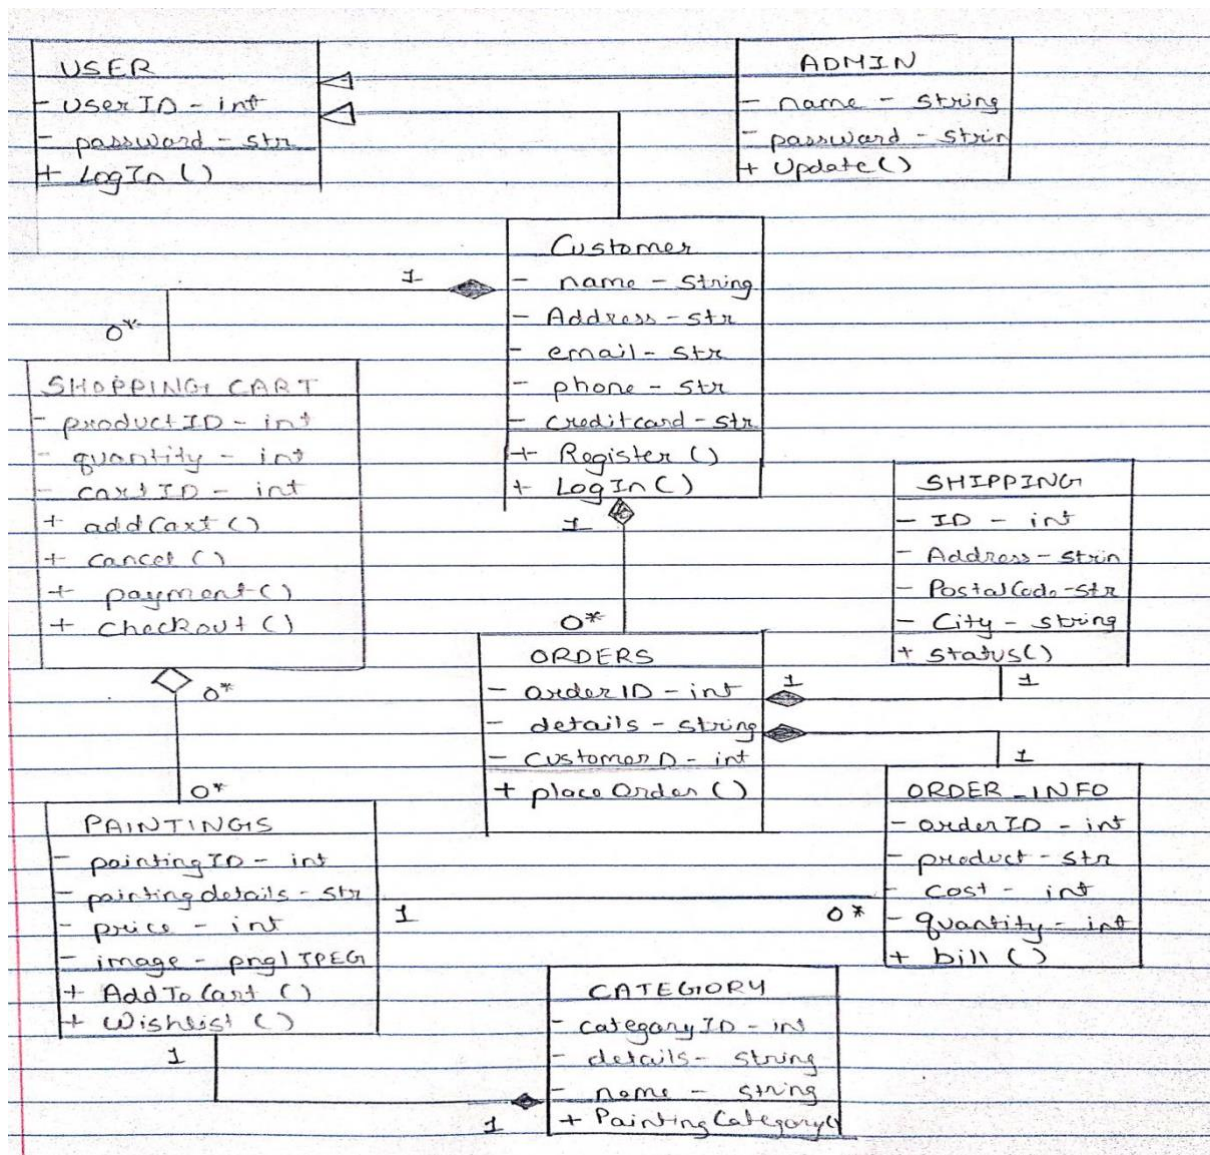 USER
- userID - int
- password - str
+ LogIn ()
ADMIN
- name - string
- password - strin
+ Update()
Customer
- name - String
- Address - str
- email - str
- phone - str
- creditcard - str
+ Register ()
+ LogIn ()
1
0*
SHOPPING CART
- productID - int
- quantity - int
- cartID - int
+ addCart ()
+ cancel ()
+ payment ()
+ Checkout ()
1
0*
SHIPPING
- ID - int
- Address - strin
- PostalCode - str
- City - string
+ status()
ORDERS
- orderID - int
- details - string
- CustomerD - int
+ placeOrder ()
1
1
1
0*
0*
ORDER_INFO
- orderID - int
- product - str
- cost - int
- quantity - int
+ bill ()
PAINTINGS
- paintingID - int
- paintingdetails - str
- price - int
- image - png|JPEG
+ AddToCart ()
+ Wishlist ()
1
0*
CATEGORY
- categoryID - int
- details - string
- name - string
+ PaintingCategory()
1
1